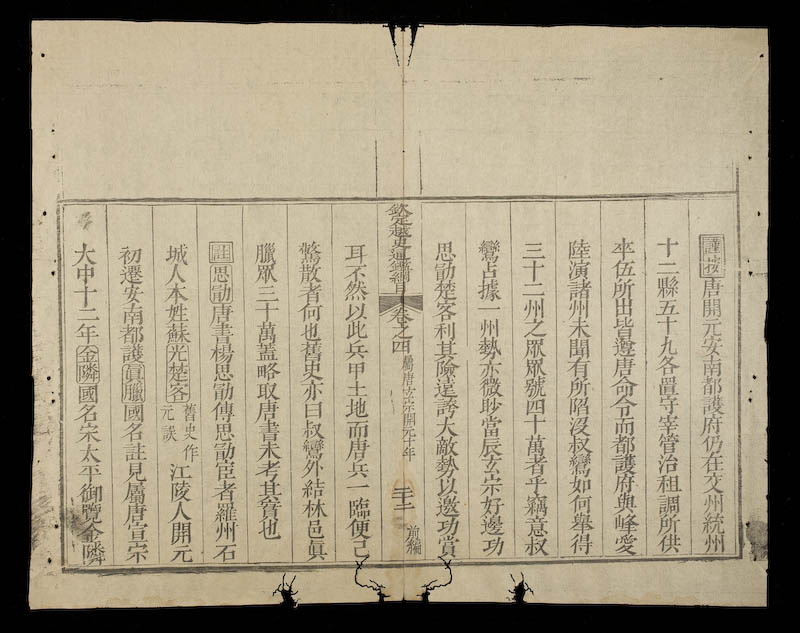 謹按唐開元安南都護府仍在交州統州
十二縣五十九各置守宰管治租調所供
卒伍所出皆遵唐命令而都護府與峰愛
陸演諸州未聞有所陷沒叔鸞如何舉得
三十二州之眾眾號四十萬者乎竊意叔
鸞占據一州勢亦微眇當辰玄宗好邊功
思勖楚客利其險遠誇大敵勢以邀功賞
欽定越史通鑑綱目 卷之四 屬唐玄宗開元十年 三十二 前編
耳不然以此兵甲土地而唐兵一臨便已
驚散者何也舊史亦曰叔鸞外結林邑眞
臘眾三十萬蓋略取唐書未考其實也
註思勖唐書楊思勖傳思勖宦者羅州石
城人本姓蘇光楚客舊史作元誤江陵人開元
初遷安南都護眞臘國名註見屬唐宣宗
大中十二年金隣國名宋太平御覽金隣